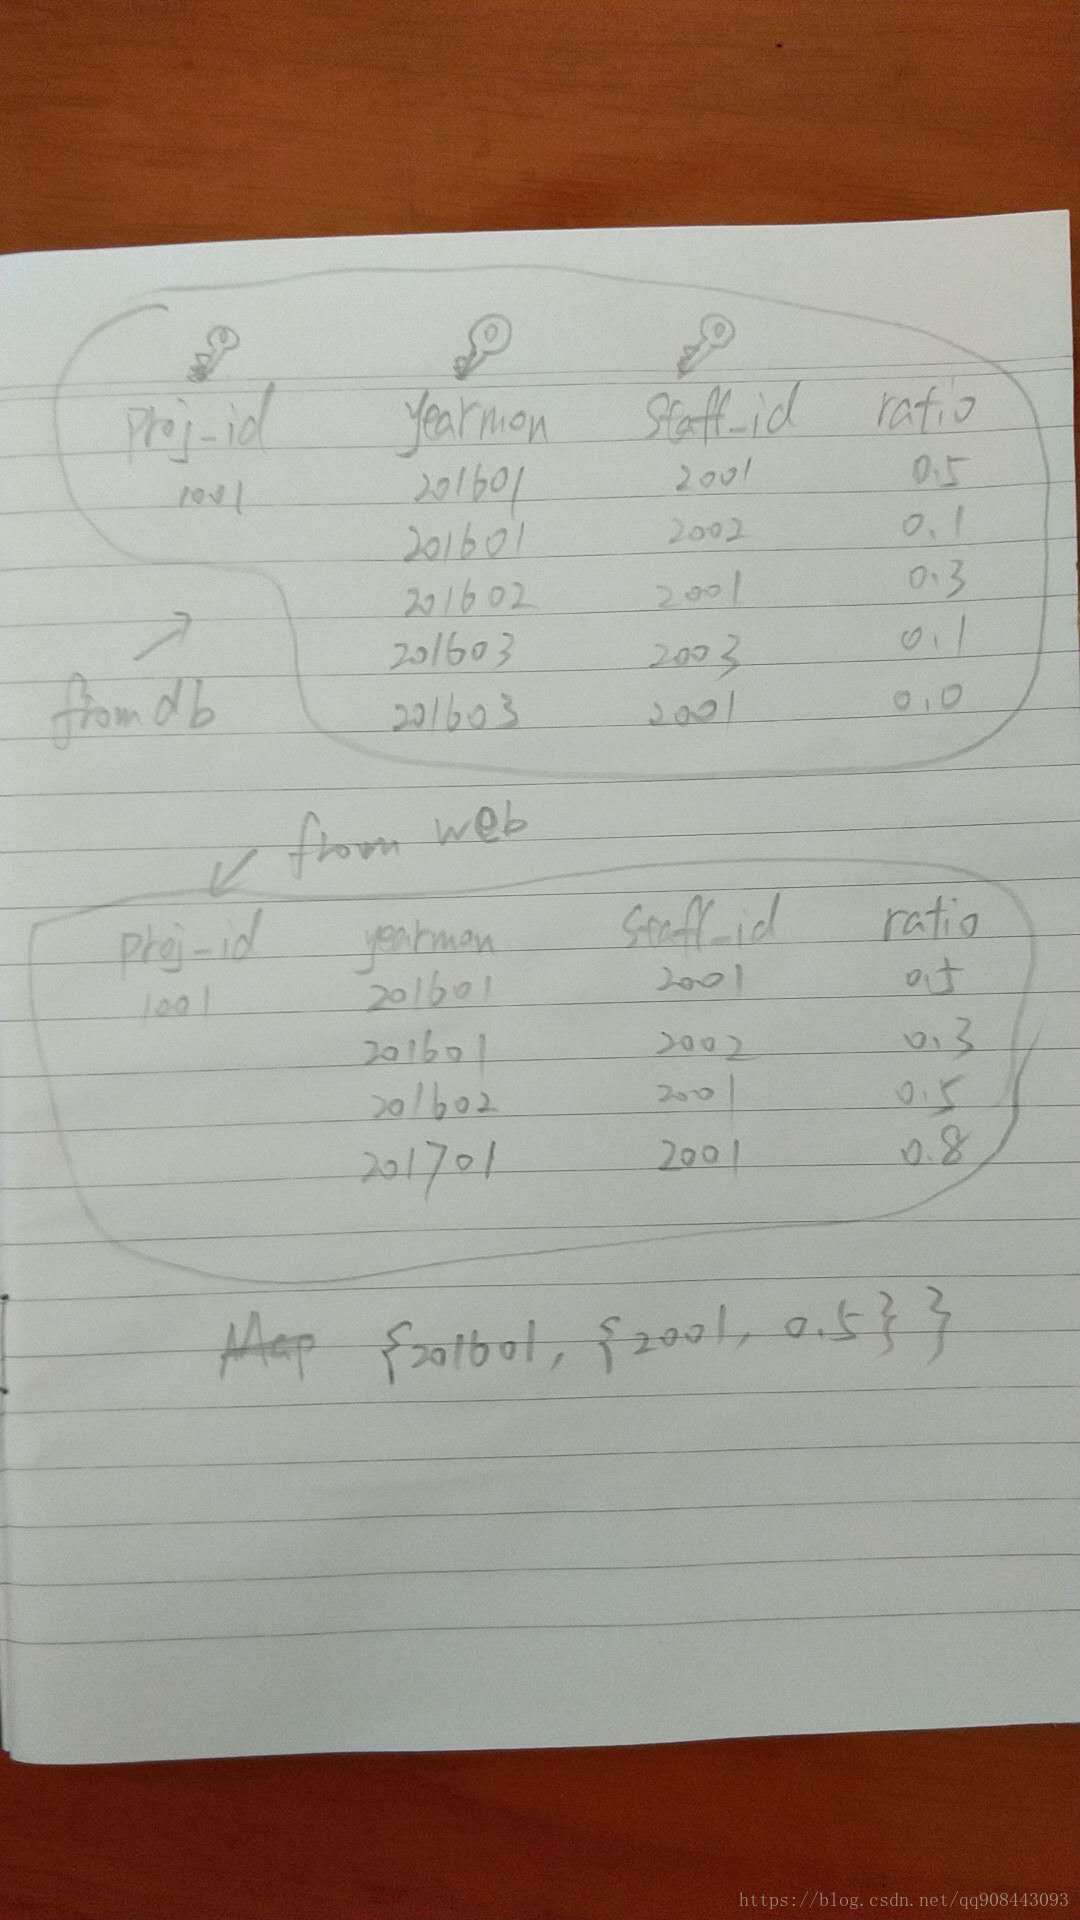 proj_id yearmon Staff_id ratio
1001 201601 2001 0.5
201601 2002 0.1
201602 2001 0.3
201603 2003 0.1
from db 201603 2001 0.0
from web
proj_id yearmon Staff_id ratio
1001 201601 2001 0.5
201601 2002 0.3
201602 2001 0.5
201701 2001 0.8
Map {201601, {2001, 0.5}}
https://blog.csdn.net/qq908443093